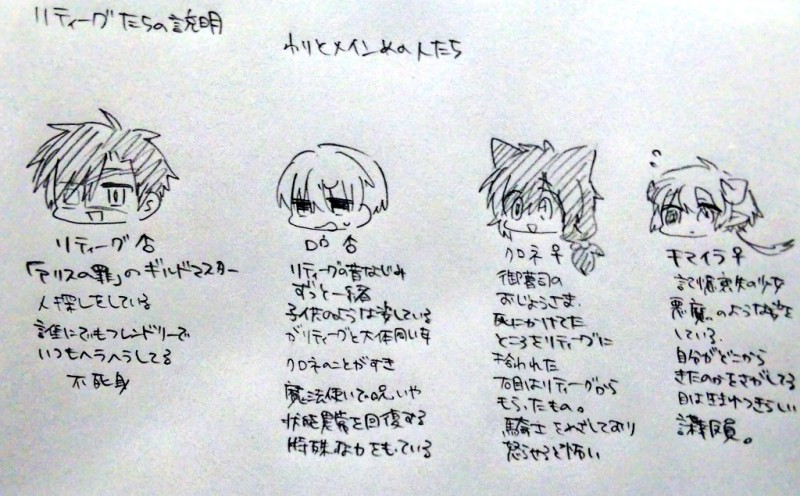 リティーグたちの説明
わりとメインめの人たち
リティーグ ♂
「アリスの罪」のギルドマスター
人探しをしている
誰にでもフレンドリーで
いつもヘラヘラしてる
不死身
ロウ ♂
リティーグの昔なじみ
ずっと一緒
子供のような姿している
がリティーグと大体同い年
クロネのことがすき
魔法使いで呪いや
状態異常を回復する
特殊な力をもっている
クロネ ♀
御曹司の
おじょうさま。
死にかけてた
ところをリティーグに
拾われた
右目はリティーグから
もらったもの。
騎士をめざしており
怒らせると怖い
キマイラ ♀
記憶喪失の少女
悪魔のような姿を
している。
自分がどこから
きたのかをさがしてる
目は生まれつきらしい
議員。